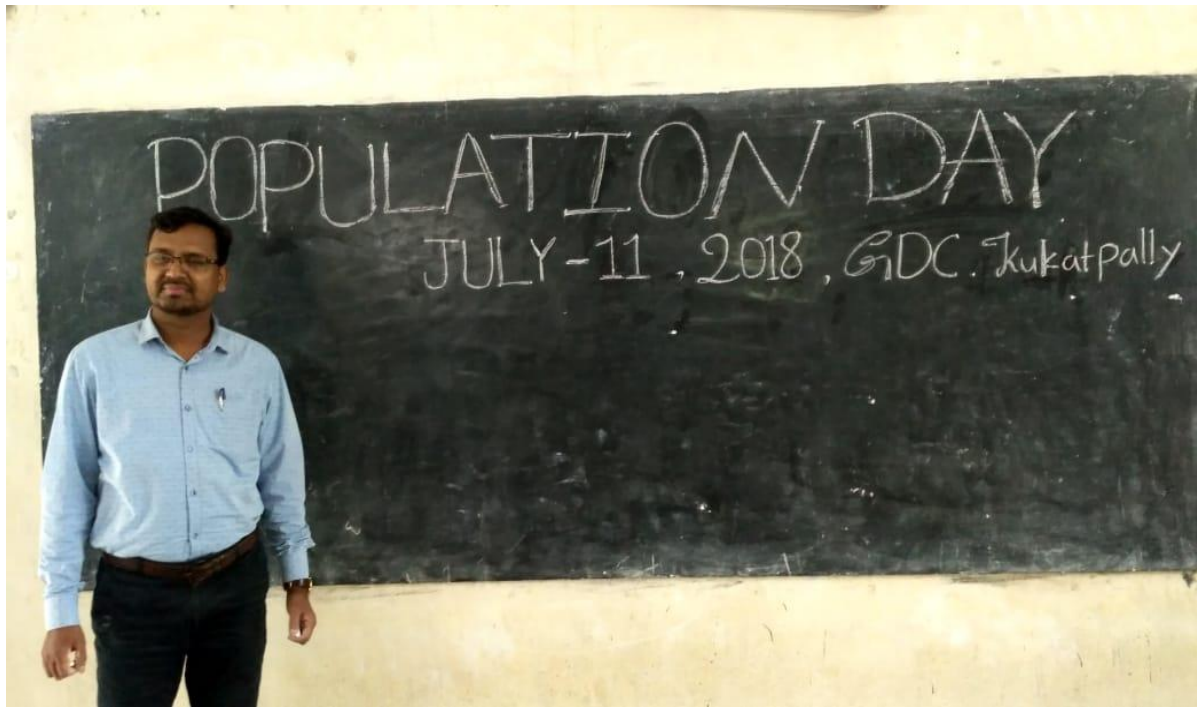 POPULATION DAY
JULY-11, 2018, GDC. Kukatpally